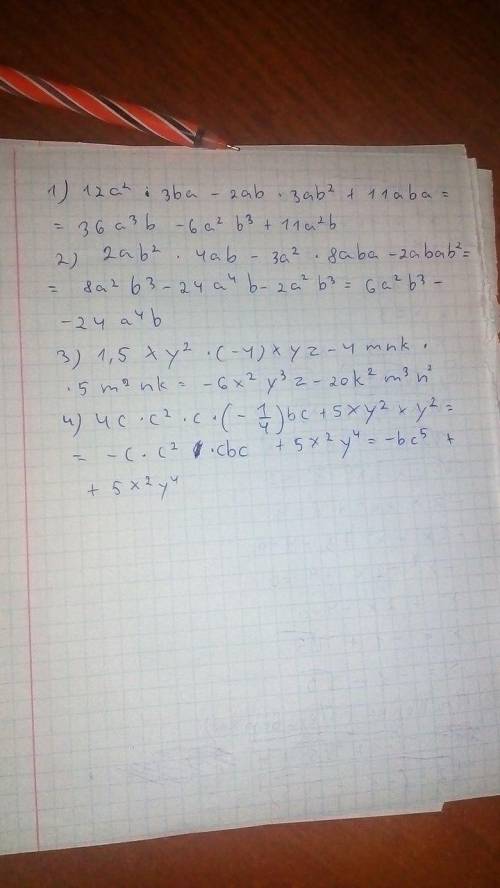 1) 12a² · 3ba - 2ab · 3ab² + 11aba =
= 36a³b - 6a²b³ + 11a²b
2) 2ab² · 4ab - 3a² · 8aba - 2abab² =
= 8a²b³ - 24a⁴b - 2a²b³ = 6a²b³ -
- 24a⁴b
3) 1,5xy² · (-4)xyz - 4mnk ·
· 5m²nk = -6x²y³z - 20k²m³n²
4) 4c · c² · c · (-1/4)bc + 5xy²xy² =
= -c · c² · cbc + 5x²y⁴ = -bc⁵ +
+ 5x²y⁴